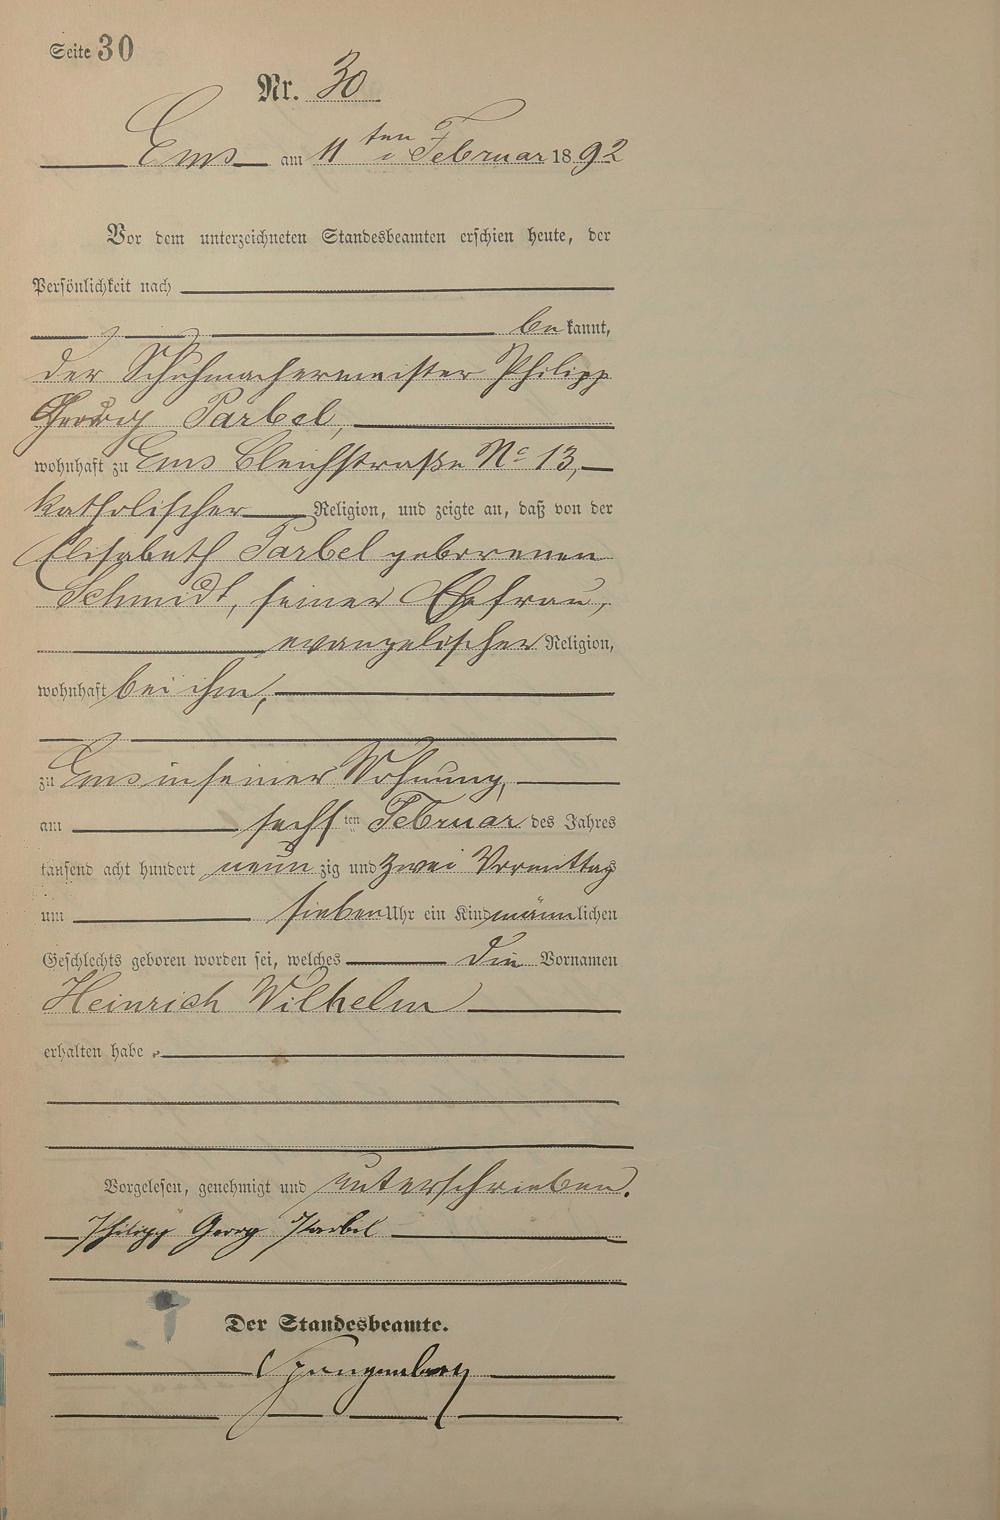 Seite 30
Nr. 30
Ems am 11ten Februar 1892
Vor dem unterzeichneten Standesbeamten erschien heute, der
Persönlichkeit nach
bekannt,
der Schuhmachermeister Philipp
Georg Parbel,
wohnhaft zu Ems Bleichstraße No 13,
katholischer Religion, und zeigte an, daß von der
Elisabeth Parbel geborenen
Schmidt, seiner Ehefrau,
evangelischer Religion,
wohnhaft bei ihm,
zu Ems in seiner Wohnung,
am sechsten Februar des Jahres
tausend acht hundert neunzig und zwei Vormittag
um sieben Uhr ein Kind männlichen
Geschlechts geboren worden sei, welches die Vornamen
Heinrich Wilhelm
erhalten habe.
Vorgelesen, genehmigt und unterschrieben.
Philipp Georg Parbel
Der Standesbeamte.
Spangenberg